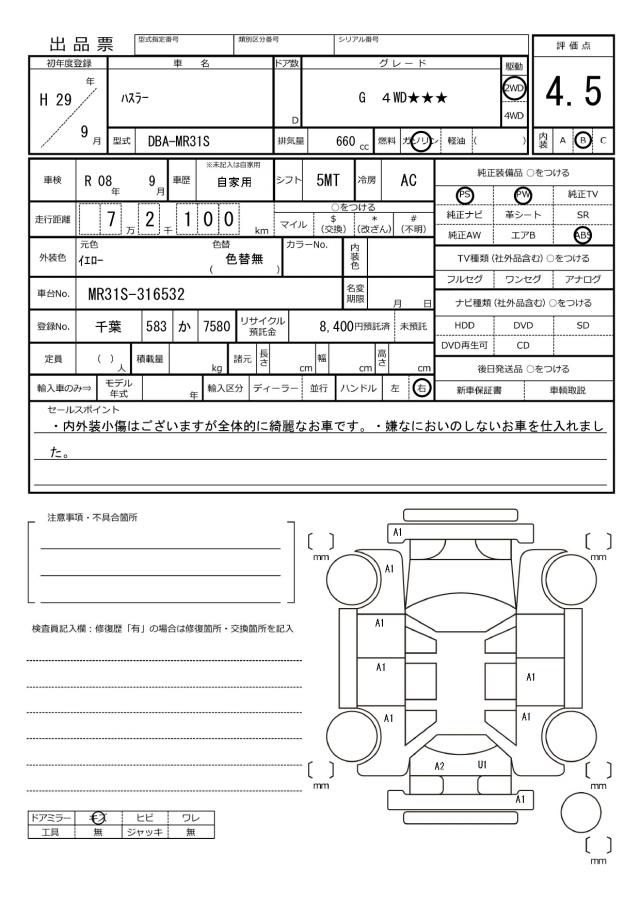 出品票
型式指定番号 類別区分番号 シリアル番号
評価点
初年度登録 車名 ドア数 グレード 駆動
H 29 年 ハスラー G 4WD★★★ 2WD 4.5
9 月 D 4WD
型式 DBA-MR31S 排気量 660 cc 燃料 ガソリン 軽油 ( ) 内装 A B C
車検 R 08 年 9 月 車歴 ※未記入は自家用 自家用 シフト 5MT 冷房 AC 純正装備品 ○をつける
PS PW 純正TV
走行距離 7 2 1 0 0 万 千 km ○をつける
マイル $ (交換) * (改ざん) # (不明)
純正ナビ 革シート SR
純正AW エアB ABS
外装色 元色 イエロー 色替 色替無 ( ) カラーNo. 内装色
TV種類 (社外品含む) ○をつける
フルセグ ワンセグ アナログ
車台No. MR31S-316532 名変期限 月 日
ナビ種類 (社外品含む) ○をつける
登録No. 千葉 583 か 7580 リサイクル預託金 8,400円預託済 未預託
HDD DVD SD
DVD再生可 CD
定員 ( ) 人 積載量 kg 諸元 長さ cm 幅 cm 高さ cm
後日発送品 ○をつける
輸入車のみ⇒ モデル年式 年 輸入区分 ディーラー 並行 ハンドル 左 右
新車保証書 車輌取説
セールスポイント
・内外装小傷はございますが全体的に綺麗なお車です。・嫌なにおいのしないお車を仕入れまし
た。
注意事項・不具合箇所
検査員記入欄：修復歴「有」の場合は修復箇所・交換箇所を記入
A1
mm mm
A1
A1
A1 A1
A1 A1
A2 U1
mm mm
A1
ドアミラー キズ ヒビ ワレ
工具 無 ジャッキ 無
mm